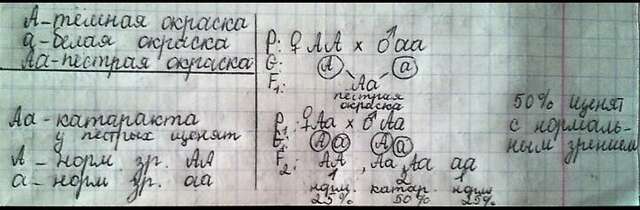 А-тёмная окраска
а-белая окраска
Аа-пёстрая окраска
Р: ♀ АА х ♂ аа
G: А а
F₁: Аа
пёстрая
окраска
Аа-катаракта
у пестрых щенят
А - норм. зр. АА
а - норм зр. аа
Р: ♀Аа х ♂ Аа
А а А а
F₂: АА, Аа, Аа аа
1 2 1
норм. катар. норм
25% 50% 25%
50% щенят
с нормаль-
ным зрением